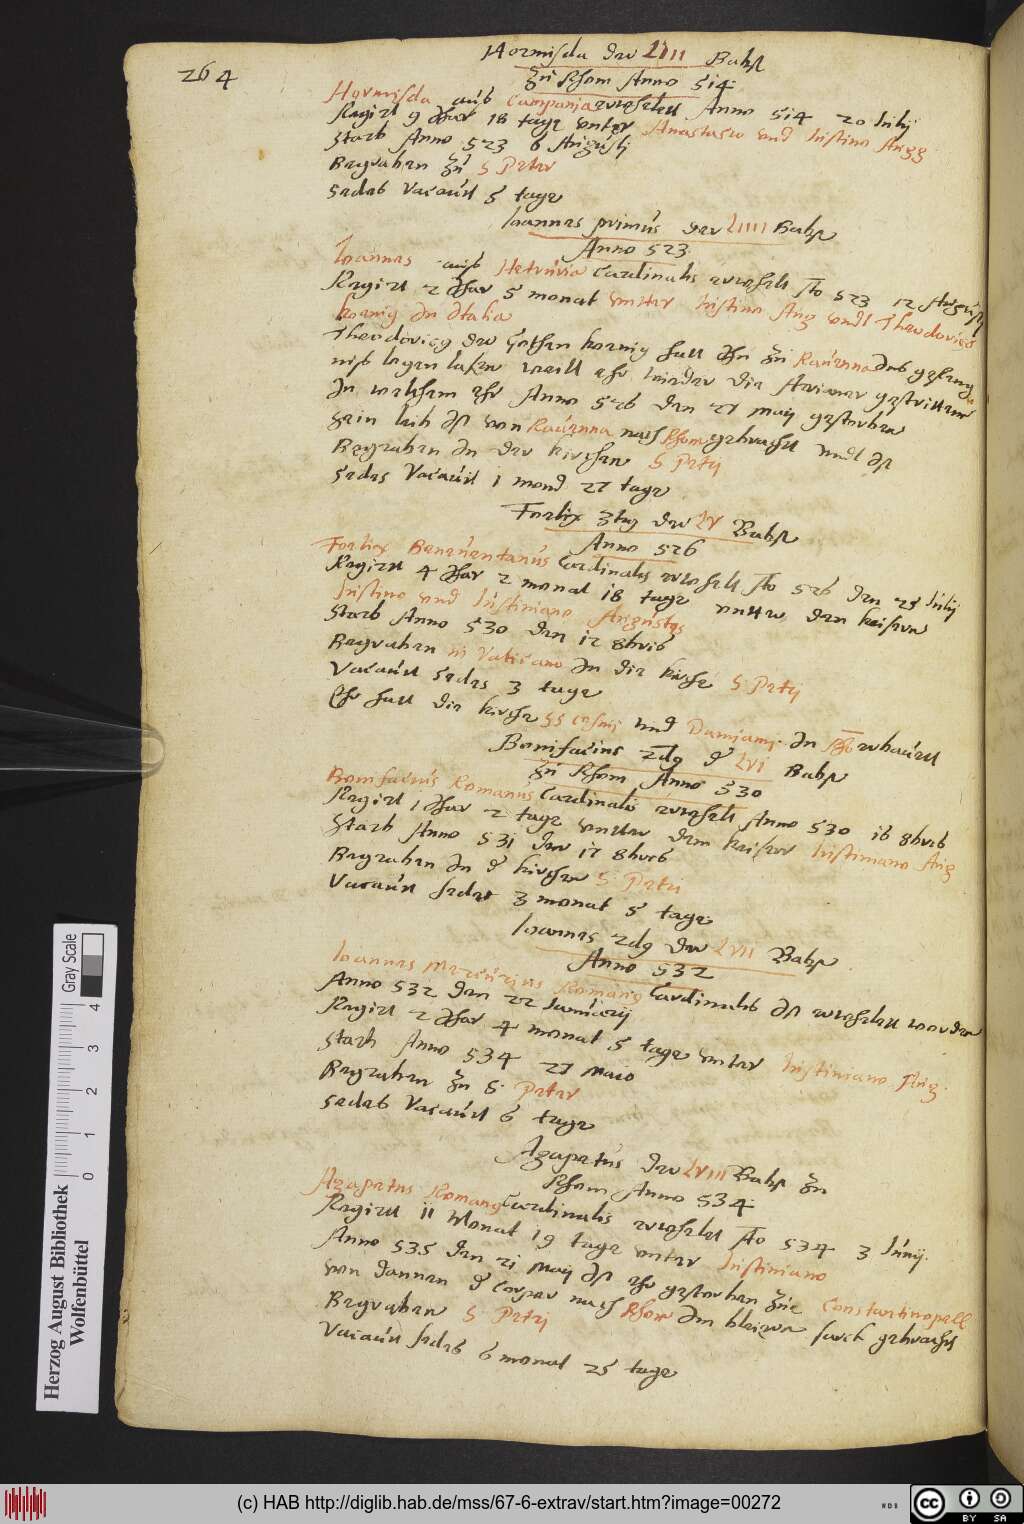 264
Hormisda der LIII Babst
zu Rhom Anno 514
Hormisda aus Campania erwehlett Anno 514 20 Julij
Regirt 9 Jhar 18 tage unter Anastasio und Justino Augg
starb Anno 523 6 Augusti
Begraben zu S Peter
sedes Vacauit 5 tage
Ioannes primus der LIIII Babst
Anno 523
Ioannes auß Hetruria Cardinalis erwehlt Ao 523 12 Augusti
Regirt 2 Jhar 5 monat unter Justino Aug undt Theodorico
koenig In Italia
Theodoricus der Gothen koenig hatt Ihn zu Rauenna Ins gefeng
niß legen laßen weill ehr wieder die Arrianer gestritten
In welchem ehr Anno 526 den 27 Maij gestorben
sein leib Ist von Rauenna nach Rhom gebracht undt Ist
Begraben In der kirchen S Petri
sedes Vacauit 1 mond 27 tage
Foelix 3tus der LV Babst
Anno 526
Foelix Beneuentanus Cardinalis erwehlt Ao 526 den 25 Julij
Regirt 4 Jhar 2 monat 18 tage unter den keisern
Justino und Justiniano Augustis
starb Anno 530 den 12 8bris
Begraben in Vaticano In die kirche S Petri
Vacauit sedes 3 tage
Ehr hatt die kirche SS Cosmi und Damiani In Rho erbauett
Bonifacius 2dus d LVI Babst
zu Rhom Anno 530
Bonifacius Romanus Cardinalis erwehlt Anno 530 16 8bris
Regirt 1 Jhar 2 tage unter dem keiser Justiniano Aug
starb Anno 531 den 17 8bris
Begraben In d kirchen S Petri
Vacauit sedes 3 monat 5 tage
Ioannes 2dus der LVII Babst
Anno 532
Ioannes Mercurius Romanus Cardinalis Ist erwehlett worden
Anno 532 den 22 Januarij
Regirt 2 Jhar 4 monat 5 tage unter Justiniano Aug.
starb Anno 534 27 Maio
Begraben zu S Peter
sedes Vacauit 6 tage
Agapetus der LVIII Babst zu
Rhom Anno 534
Agapetus Romanus Cardinalis erwehlet Ao 534 3 Junij.
Regirt 11 Monat 19 tage unter Justiniano
Anno 535 den 21 Maij Ist ehr gestorben zue Constantinopell
von dannen d Corper nach Rhom Im bleiern sarck gebracht
Begraben S Petri
Vacauit sedes 6 monat 25 tage
Herzog August Bibliothek
Wolfenbüttel
0 1 2 3 4
Gray Scale
(c) HAB http://diglib.hab.de/mss/67-6-extrav/start.htm?image=00272
WDB
cc BY SA